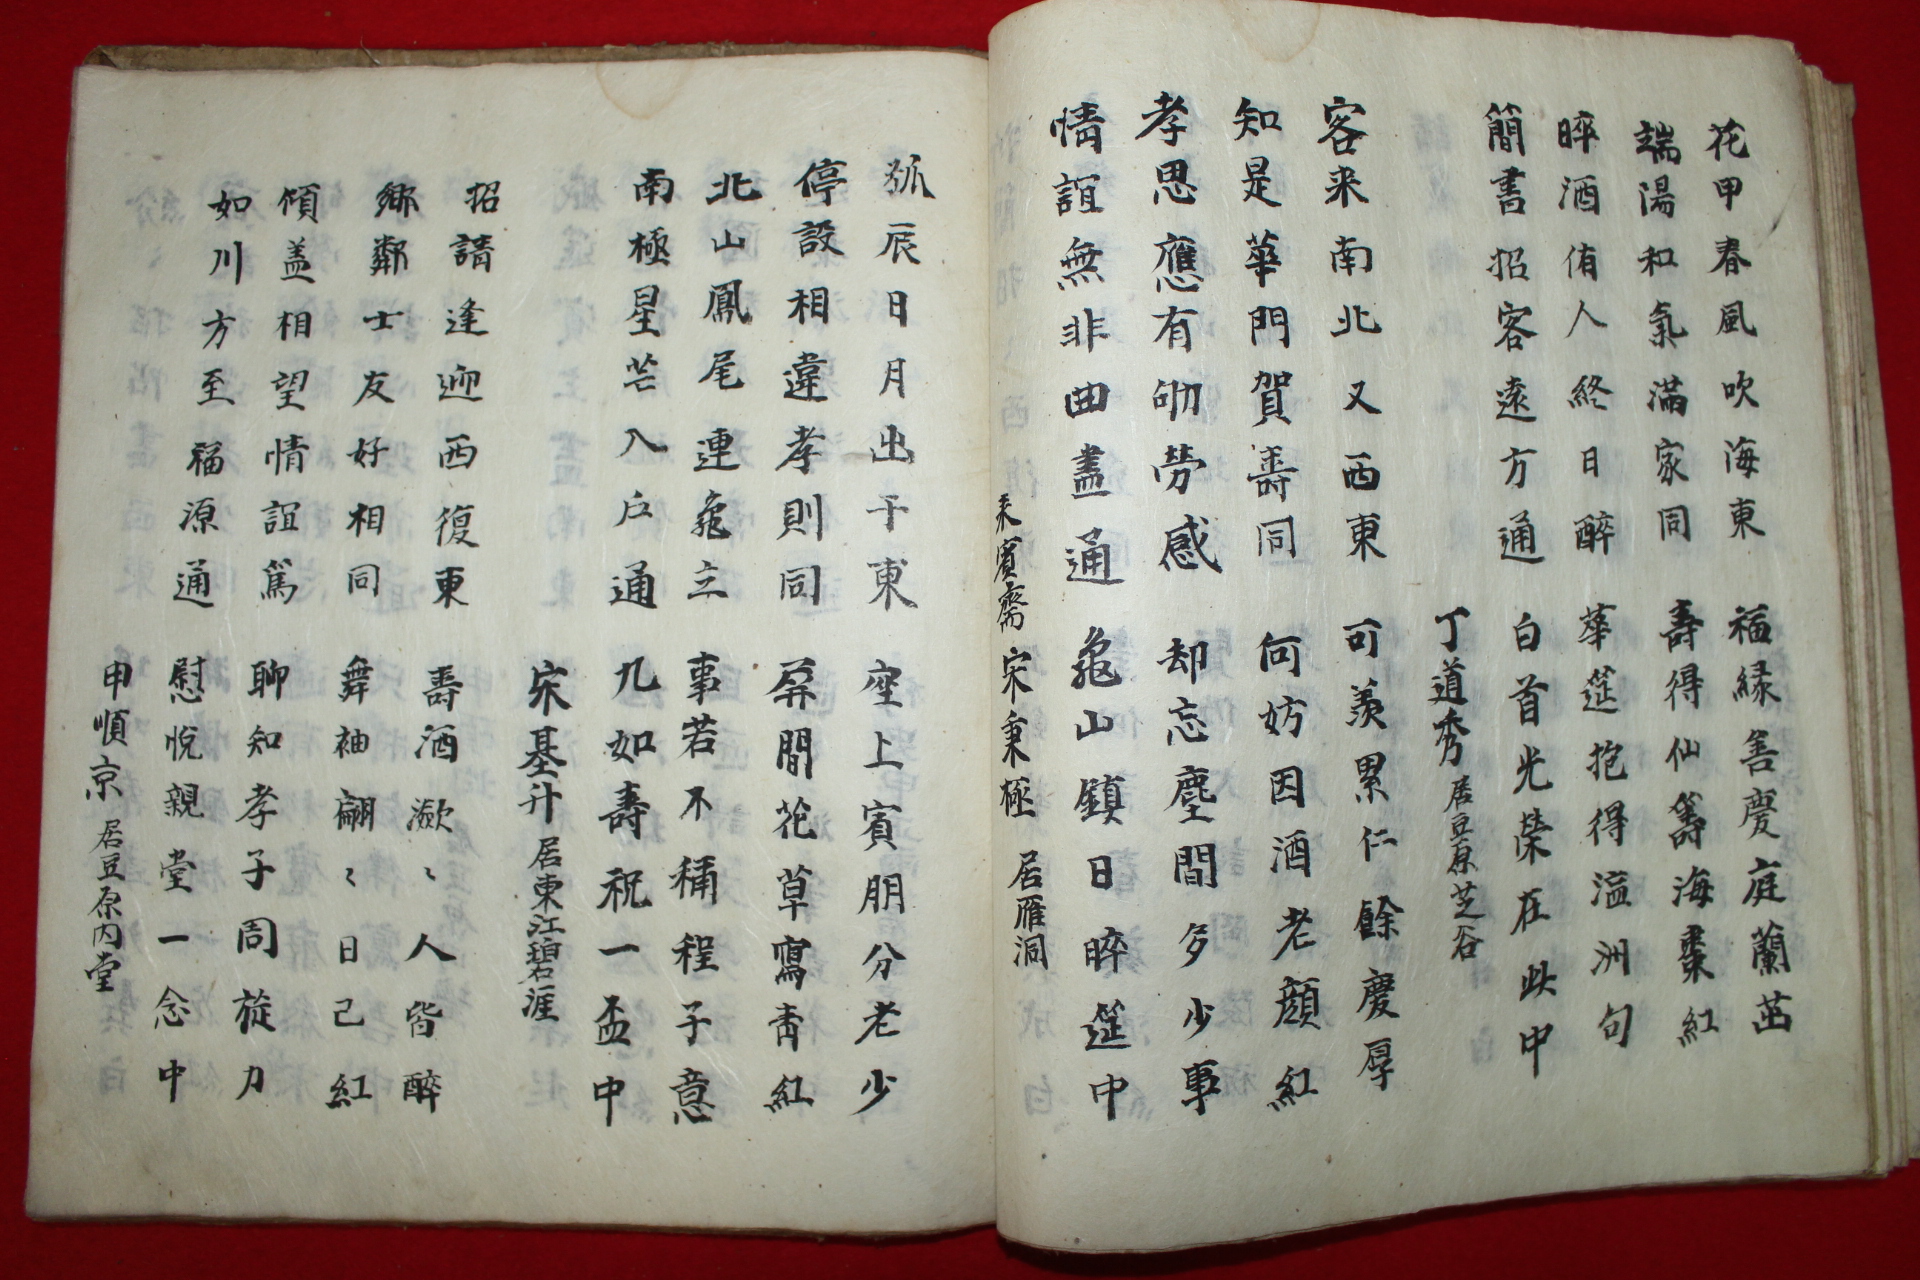 花甲春風吹海東 福緣善慶庭蘭茁
端陽和氣滿家同 壽得仙籌海棗紅
晬酒侑人終日醉 華筵抱得溢洲句
簡書招客遠方通 白首光榮在此中
丁道秀 居豆原芝谷
客来南北又西東 可羨累仁餘慶厚
知是華門賀壽同 何妨因酒老顔紅
孝思應有劬勞感 却忘塵間多少事
情誼無非曲盡通 龜山鎮日晬筵中
来賓齋 宋秉極 居雁洞
弧辰日月出于東 座上賓朋分老少
停設相違孝則同 屏間花草寫青紅
北山鳳尾連龜立 事若不稱程子意
南極星芒入戶通 九如壽祝一盃中
宋基升 居東江碧涯
招請逢迎西復東 壽酒潋〻人皆醉
鄉鄰士友好相同 舞袖翩〻日已紅
傾盖相望情誼篤 聊知孝子周旋力
如川方至福源通 慰悅親堂一念中
申順京 居豆原内堂